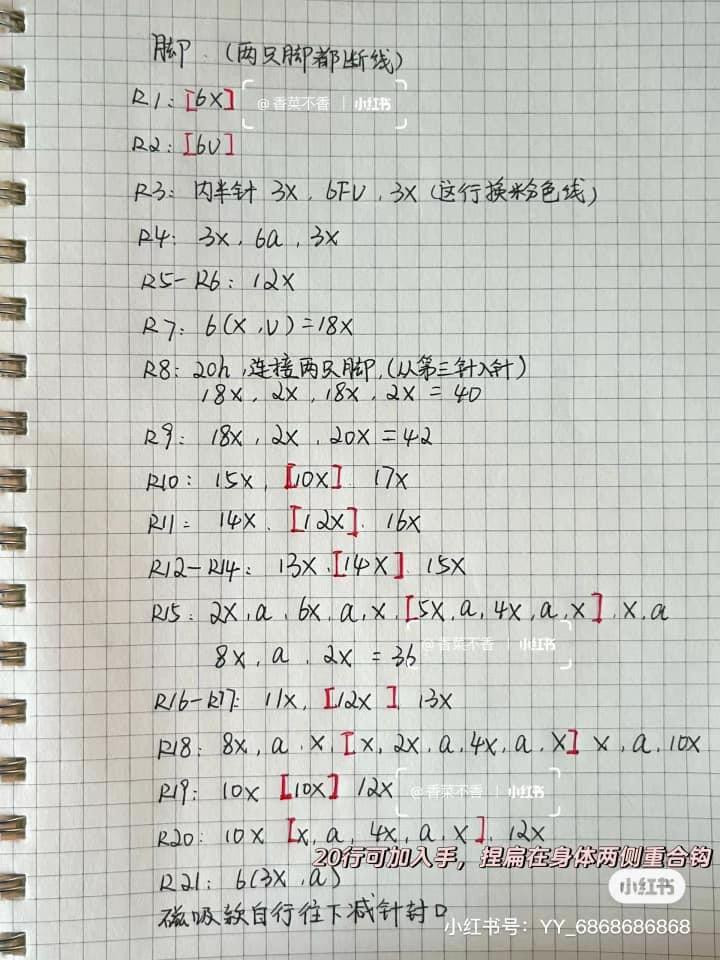 脚.(两只脚都断线)
R1:[6X]
@香菜不香 | 小红书
R2:[6V]
R3: 内半针 3X, 6FV, 3X (这行换粉色线)
R4: 3X, 6A, 3X
R5-R6: 12X
R7: 6(X,V)=18X
R8: 20h,连接两只脚,(从第三针入针)
18X, 2X, 18X, 2X = 40
R9: 18X, 2X, 20X =42
R10: 15X, [10X]. 17X
R11: 14X. [12X]. 16X
R12-R14: 13X.[14X]. 15X
R15: 2X,a,6X,a,X,[5X,a,4X,a,X].X.a
8X,a,2X = 36
@香菜不香 | 小红书
R16-R17: 11X, [12X] 13X
R18: 8X,a.X.[X,2X,a,4X,a,X] X,a,10X
R19: 10X [10X] 12X
@香菜不香 | 小红书
R20: 10X [X,a,4X,a,X]. 12X
20行可加入手,捏扁在身体两侧重合钩
R21: 6(3X,a)
小红书
磁吸款自行往下减针封口
小红书号:YY_6868686868